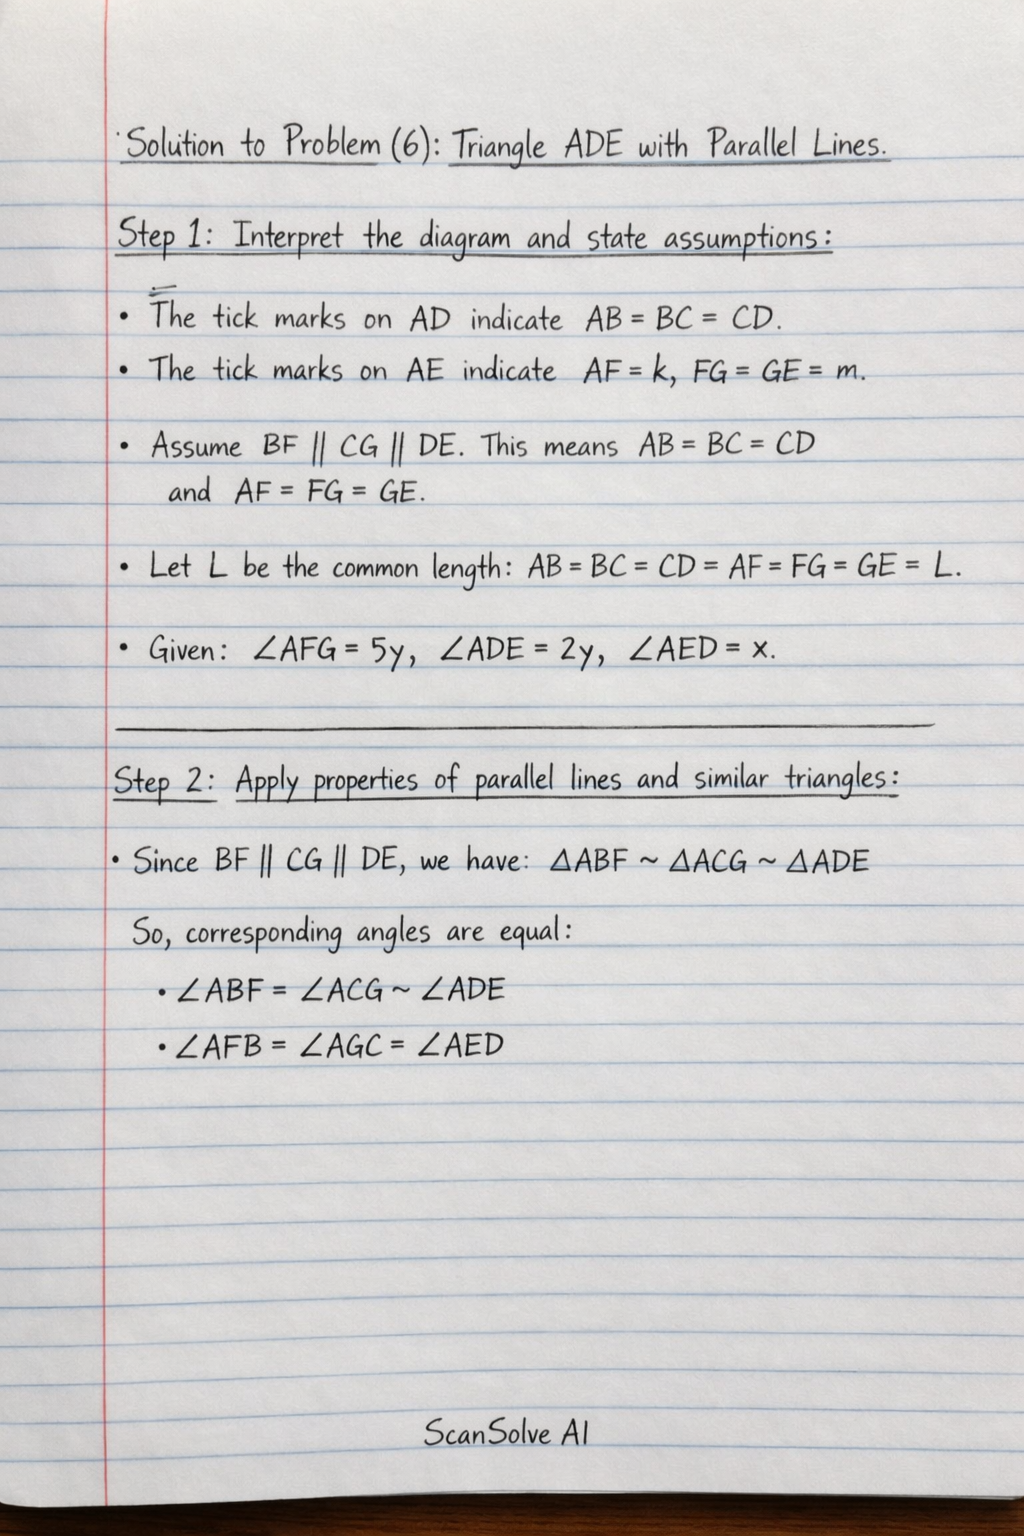 Solution to Problem (6): Triangle ADE with Parallel Lines.
Step 1: Interpret the diagram and state assumptions:
• The tick marks on AD indicate AB = BC = CD.
• The tick marks on AE indicate AF = k, FG = GE = m.
• Assume BF || CG || DE. This means AB = BC = CD
and AF = FG = GE.
• Let L be the common length: AB = BC = CD = AF = FG = GE = L.
• Given: ∠AFG = 5y, ∠ADE = 2y, ∠AED = x.
Step 2: Apply properties of parallel lines and similar triangles:
• Since BF || CG || DE, we have: ΔABF ~ ΔACG ~ ΔADE
So, corresponding angles are equal:
• ∠ABF = ∠ACG ~ ∠ADE
• ∠AFB = ∠AGC = ∠AED
ScanSolve AI